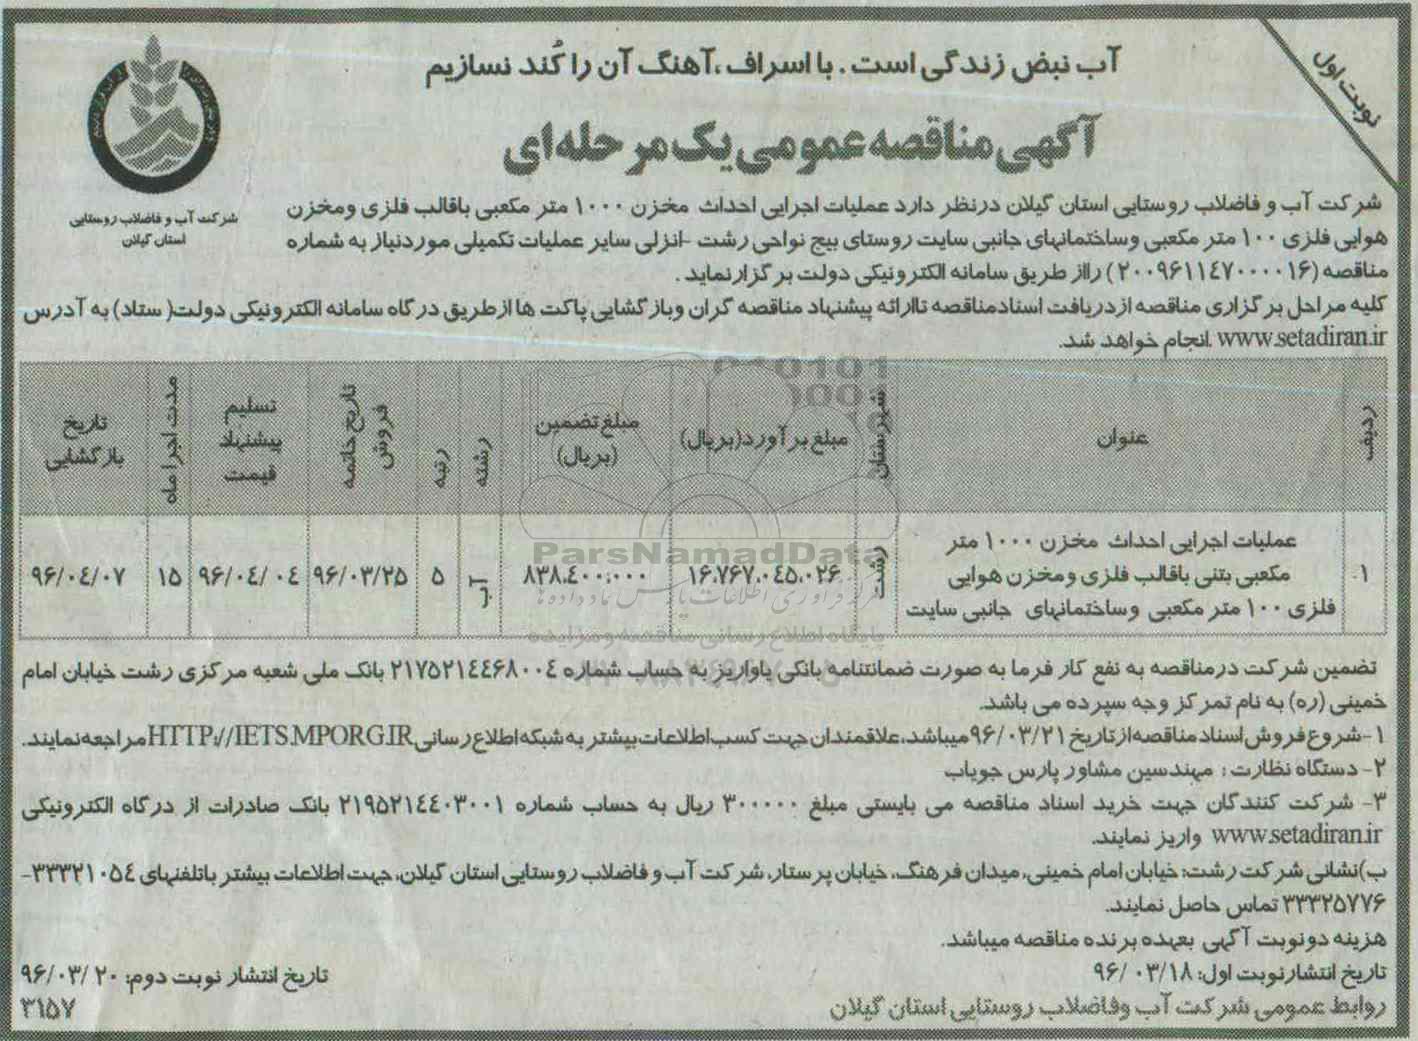 نوبت اول
آب نبض زندگی است . با اسراف ،آهنگ آن را کُند نسازیم
آگهی مناقصه عمومی یک مرحله‌ای
شرکت آب و فاضلاب روستایی
استان گیلان
شرکت آب و فاضلاب روستایی استان گیلان درنظر دارد عملیات اجرایی احداث مخزن ۱۰۰۰ متر مکعبی باقالب فلزی ومخزن
هوایی فلزی ۱۰۰ متر مکعبی وساختمانهای جانبی سایت روستای بیج نواحی رشت -انزلی سایر عملیات تکمیلی موردنیاز به شماره
مناقصه (۲۰۰۹۶۱۱۴۷۰۰۰۰۱۶) رااز طریق سامانه الکترونیکی دولت برگزارنماید .
کلیه مراحل برگزاری مناقصه ازدریافت اسنادمناقصه تاارائه پیشنهاد مناقصه گران وبازگشایی پاکت ها ازطریق درگاه سامانه الکترونیکی دولت( ستاد) به آدرس
www.setadiran.ir انجام خواهد شد.
ردیف | عنوان | شهرستان | مبلغ برآورد(بریال) | مبلغ تضمین (بریال) | رشته | رتبه | تاریخ خاتمه فروش | تسلیم پیشنهاد قیمت | مدت اجرا ماه | تاریخ بازگشایی
۱ | عملیات اجرایی احداث مخزن ۱۰۰۰ متر مکعبی بتنی باقالب فلزی ومخزن هوایی فلزی ۱۰۰ متر مکعبی وساختمانهای جانبی سایت | رشت | ۱۶،۷۶۷،۰۴۵،۰۲۶ | ۸۳۸،۴۰۰،۰۰۰ | آب | ۵ | ۹۶/۰۳/۲۵ | ۹۶/۰۴/ ۰۴ | ۱۵ | ۹۶/۰۴/۰۷
ParsNamadData
مرکز فرآوری اطلاعات پارس نماد داده ها
پایگاه اطلاع رسانی مناقصه و مزایده
تضمین شرکت درمناقصه به نفع کار فرما به صورت ضمانتنامه بانکی یاواریز به حساب شماره ۲۱۷۵۲۱۴۴۶۸۰۰۴ بانک ملی شعبه مرکزی رشت خیابان امام
خمینی (ره) به نام تمرکز وجه سپرده می باشد.
۱-شروع فروش اسنادمناقصه ازتاریخ ۹۶/۰۳/۲۱ میباشد،علاقمندان جهت کسب اطلاعات بیشتر به شبکه اطلاع رسانی HTTP://IETS.MPORG.IR مراجعه نمایند.
۲- دستگاه نظارت : مهندسین مشاور پارس جویاب
۳- شرکت کنندگان جهت خرید اسناد مناقصه می بایستی مبلغ ۳۰۰۰۰۰ ریال به حساب شماره ۲۱۹۵۲۱۴۴۰۳۰۰۱ بانک صادرات از درگاه الکترونیکی
www.setadiran.ir واریز نمایند.
ب)نشانی شرکت رشت: خیابان امام خمینی، میدان فرهنگ، خیابان پرستار، شرکت آب و فاضلاب روستایی استان گیلان، جهت اطلاعات بیشتر باتلفنهای ۳۳۳۲۱۰۵۴-
۳۳۳۲۵۷۷۶ تماس حاصل نمایند.
هزینه دونوبت آگهی بعهده برنده مناقصه میباشد.
تاریخ انتشارنوبت اول: ۹۶/ ۰۳/۱۸
تاریخ انتشار نوبت دوم: ۹۶/۰۳/ ۲۰
روابط عمومی شرکت آب وفاضلاب روستایی استان گیلان
۳۱۵۷